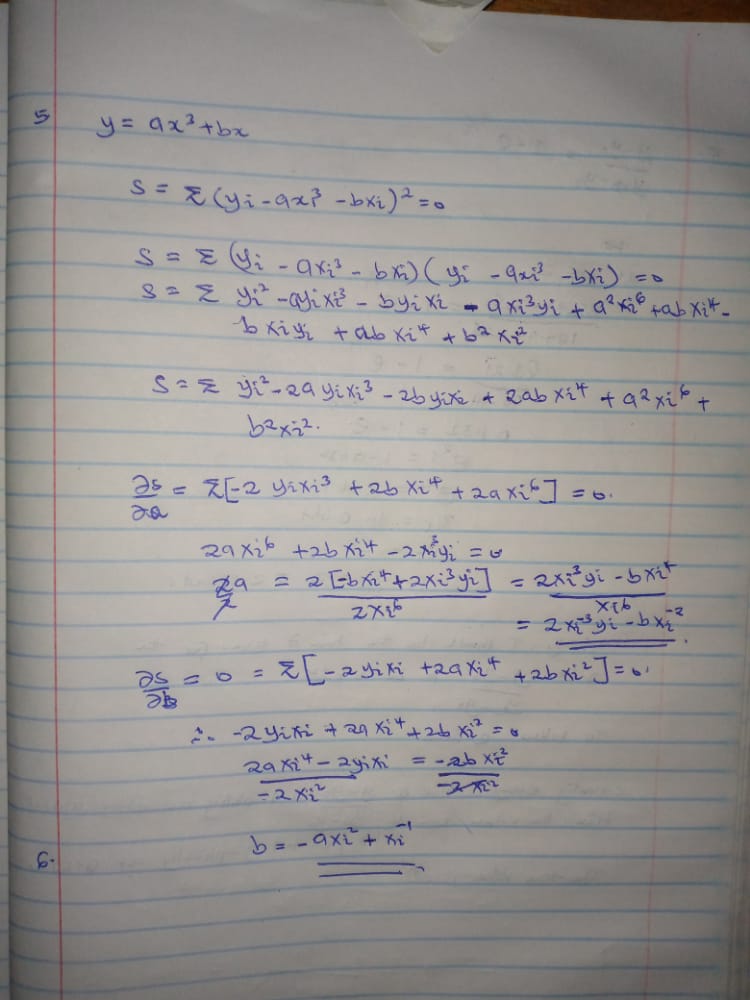 5 y = ax³ + bx
S = Σ (yi - axi³ - bxi)² = 0
S = Σ (yi - axi³ - bxi) (yi - axi³ - bxi) = 0
S = Σ yi² - ayixi³ - byixi - axi³yi + a²xi⁶ + abxi⁴ -
bxiyi + abxi⁴ + b²xi²
S = Σ yi² - 2ayixi³ - 2byixi + 2abxi⁴ + a²xi⁶ +
b²xi².
∂s/∂a = Σ[-2yixi³ + 2bxi⁴ + 2axi⁶] = 0.
2axi⁶ + 2bxi⁴ - 2xi³yi = 0
2a/2 = 2[-bxi⁴ + 2xi³yi]/2xi⁶ = 2xi³yi - bxi⁴/xi⁶
= 2xi⁻³yi - bxi⁻².
∂s/∂b = 0 = Σ[-2yixi + 2axi⁴ + 2bxi²] = 0.
∴ -2yixi + 2axi⁴ + 2bxi² = 0
2axi⁴ - 2yixi/-2xi² = -2bxi²/-2xi²
b = -axi² + xi⁻¹
6.